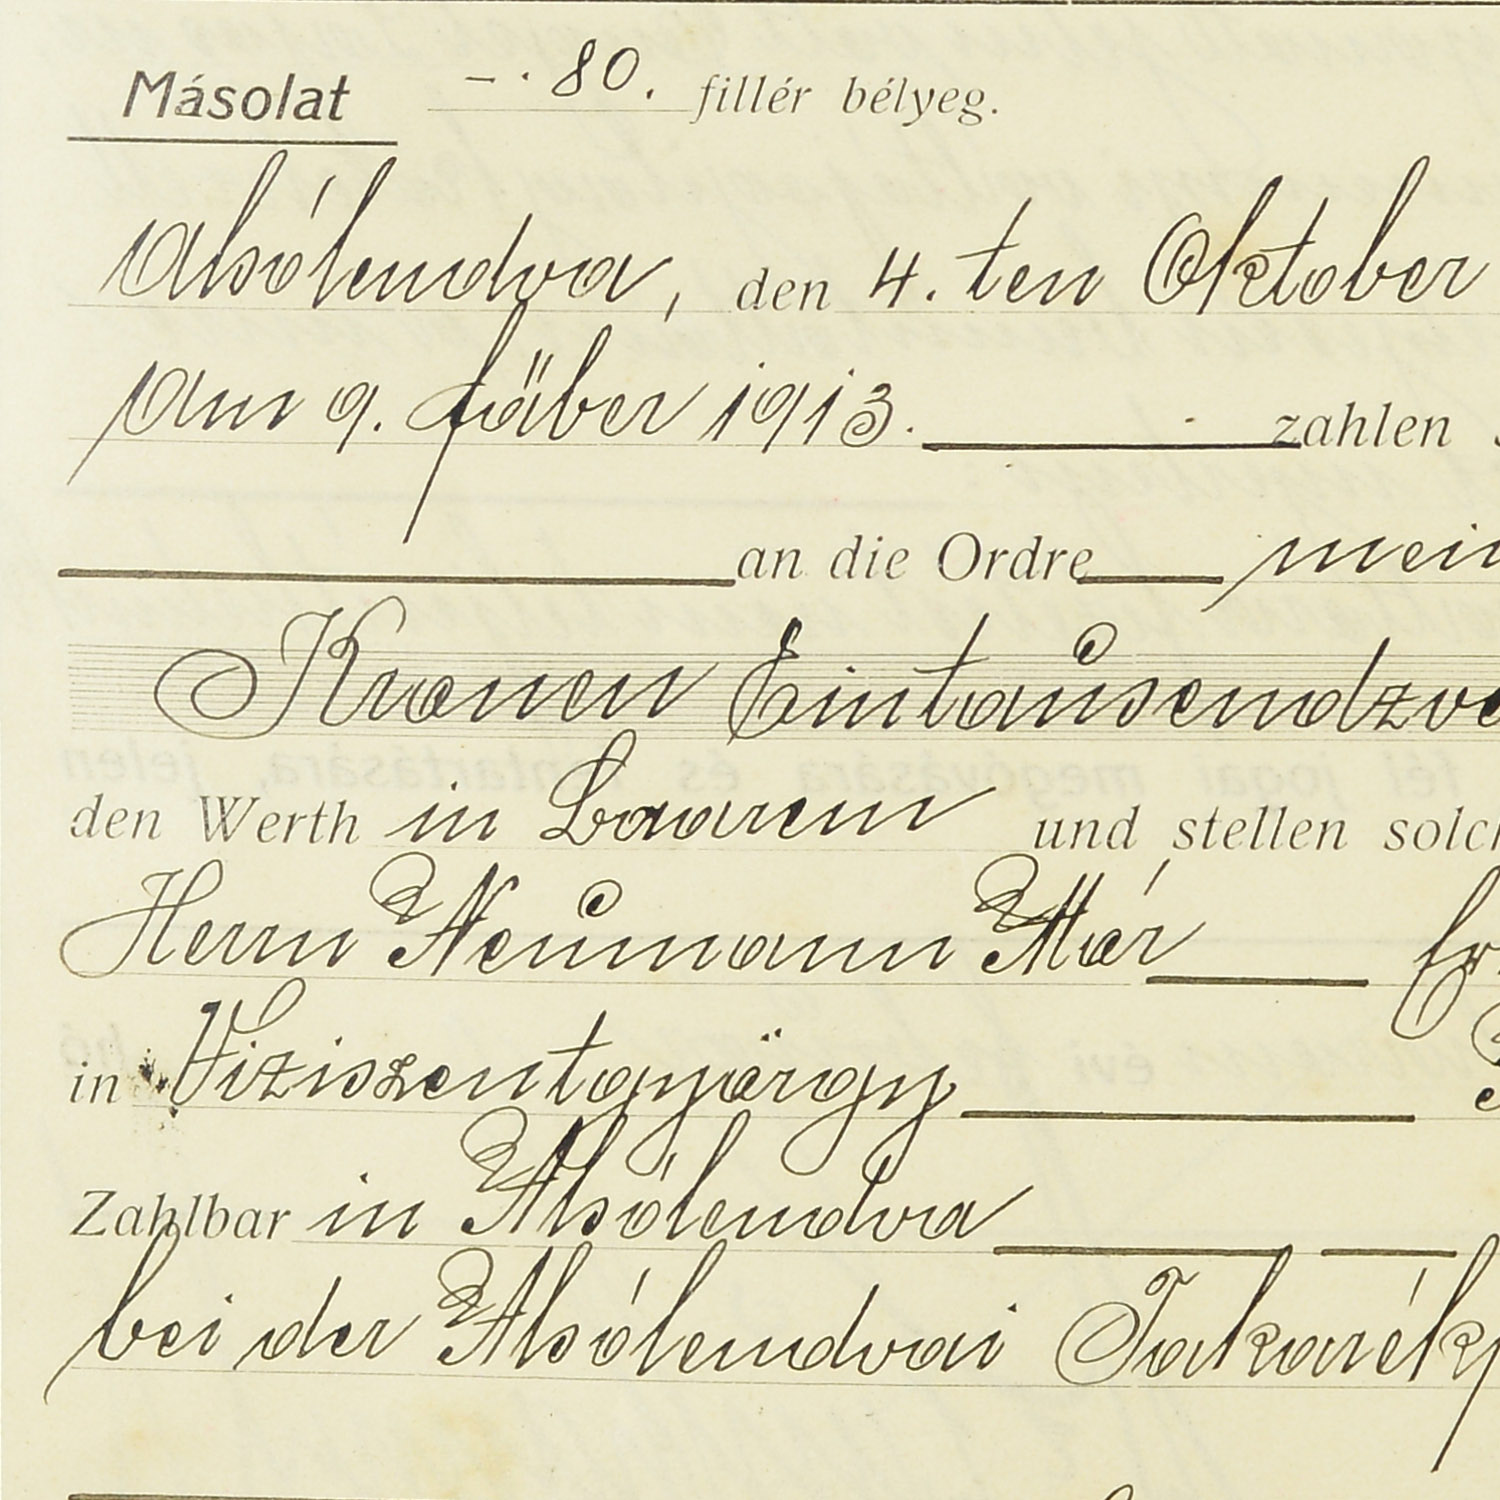 Másolat –.80. fillér bélyeg.
Alsólendva, den 4. ten Oktober
Am 9. fäber 1913. zahlen
an die Ordre mein
Kronen Eintausendzwe
den Werth in Baarem und stellen solch
Herrn Neumann Mór
in Viziszentgyörgy
Zahlbar in Alsólendva
bei der Alsólendvai Takarékp